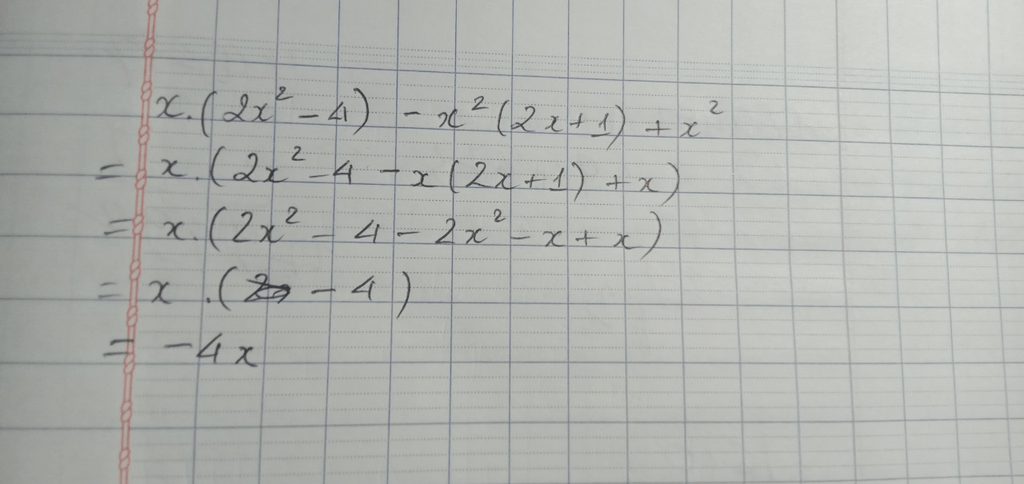 x.(2x² - 4) - x²(2x+1) + x²
= x.(2x² - 4 - x(2x+1) + x)
= x.(2x² - 4 - 2x² - x + x)
= x.(- 4)
= - 4x